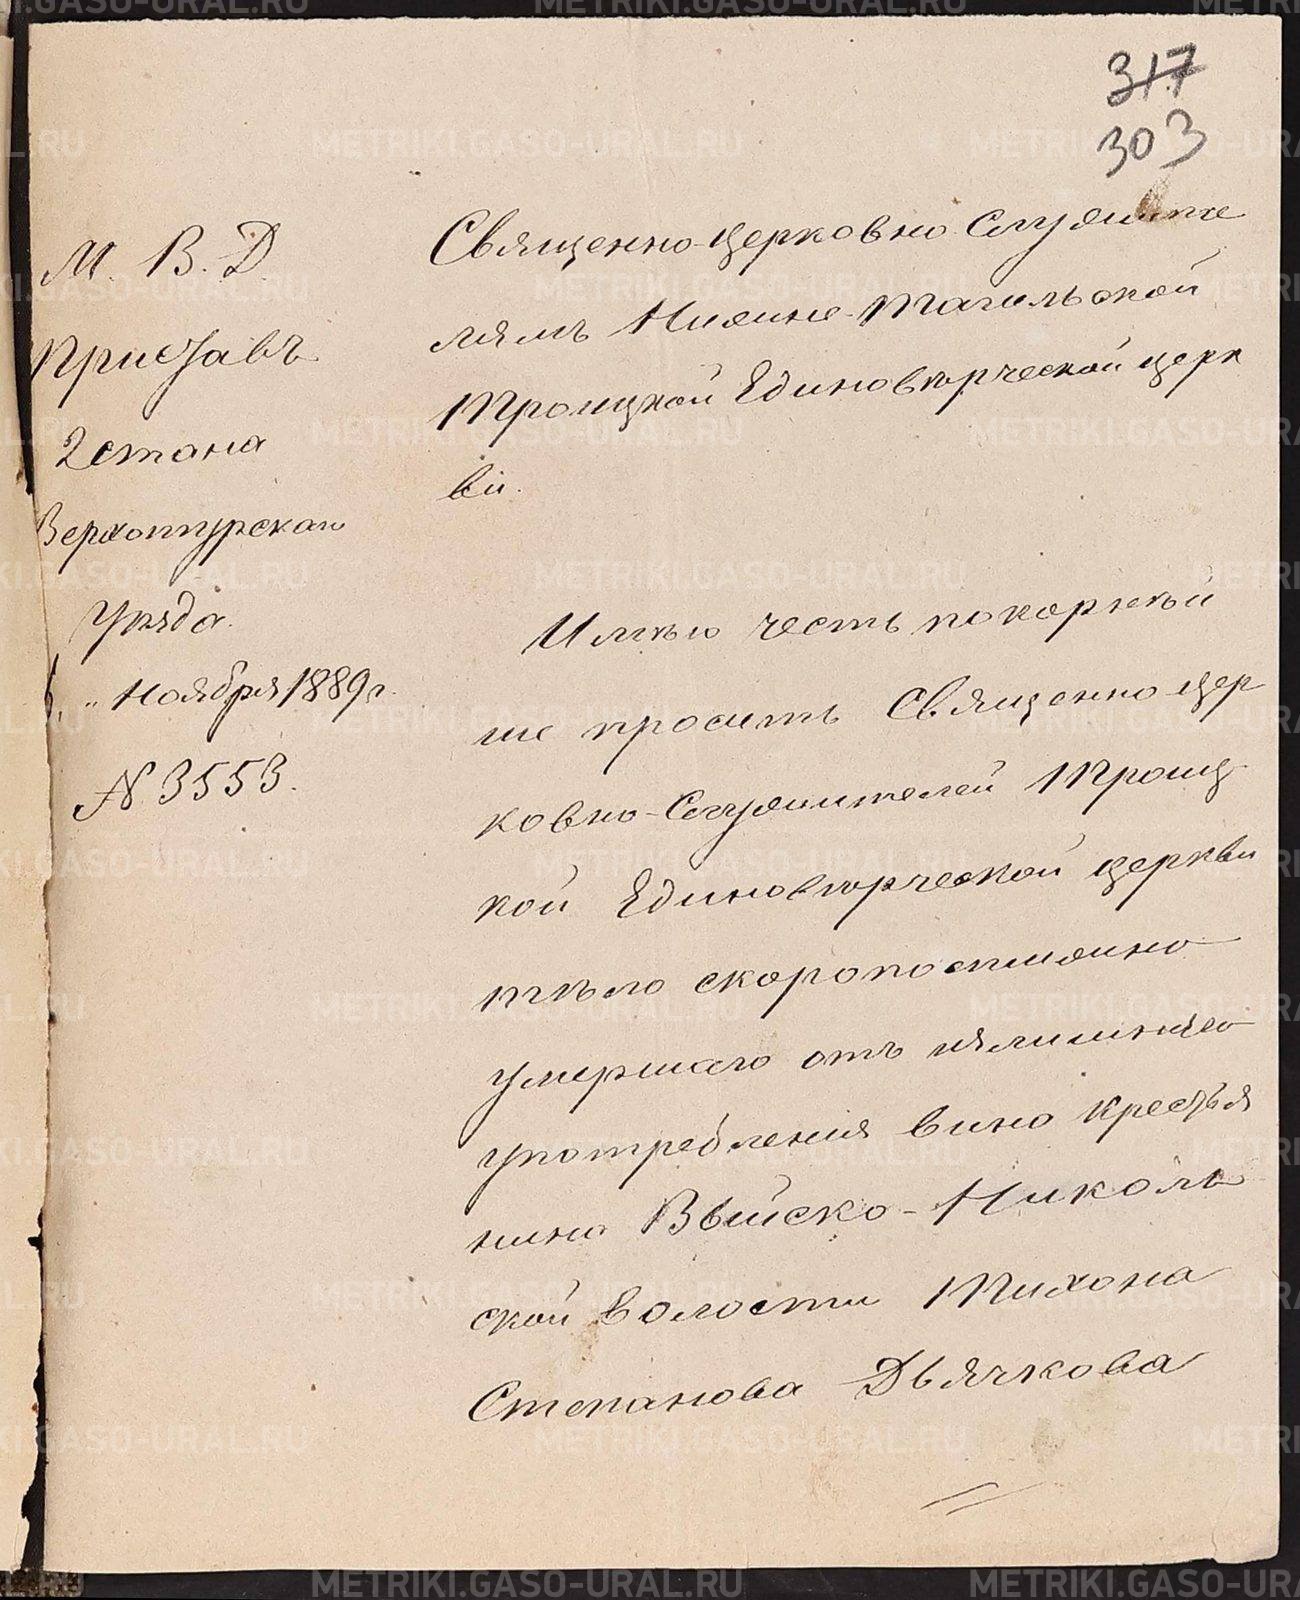 317
303
М. В. Д.
Приставъ
2 стана
Верхотурскаго
Уѣзда.
6 " Ноября 1889 г.
№ 3553.
Священно-церковно-служите
лямъ Нижне-Тагильской
Троицкой Единовѣрческой церк
ви.
Имѣю честь покорнѣй
ше просить Священно-цер
ковно-служителей Троиц
кой Единовѣрческой церкви
тѣло скоропостижно
умершаго отъ излишняго
употребленія вина крестья
нина Выйско-Николь
ской волости Тихона
Степанова Дьячкова
METRIKI.GASO-URAL.RU